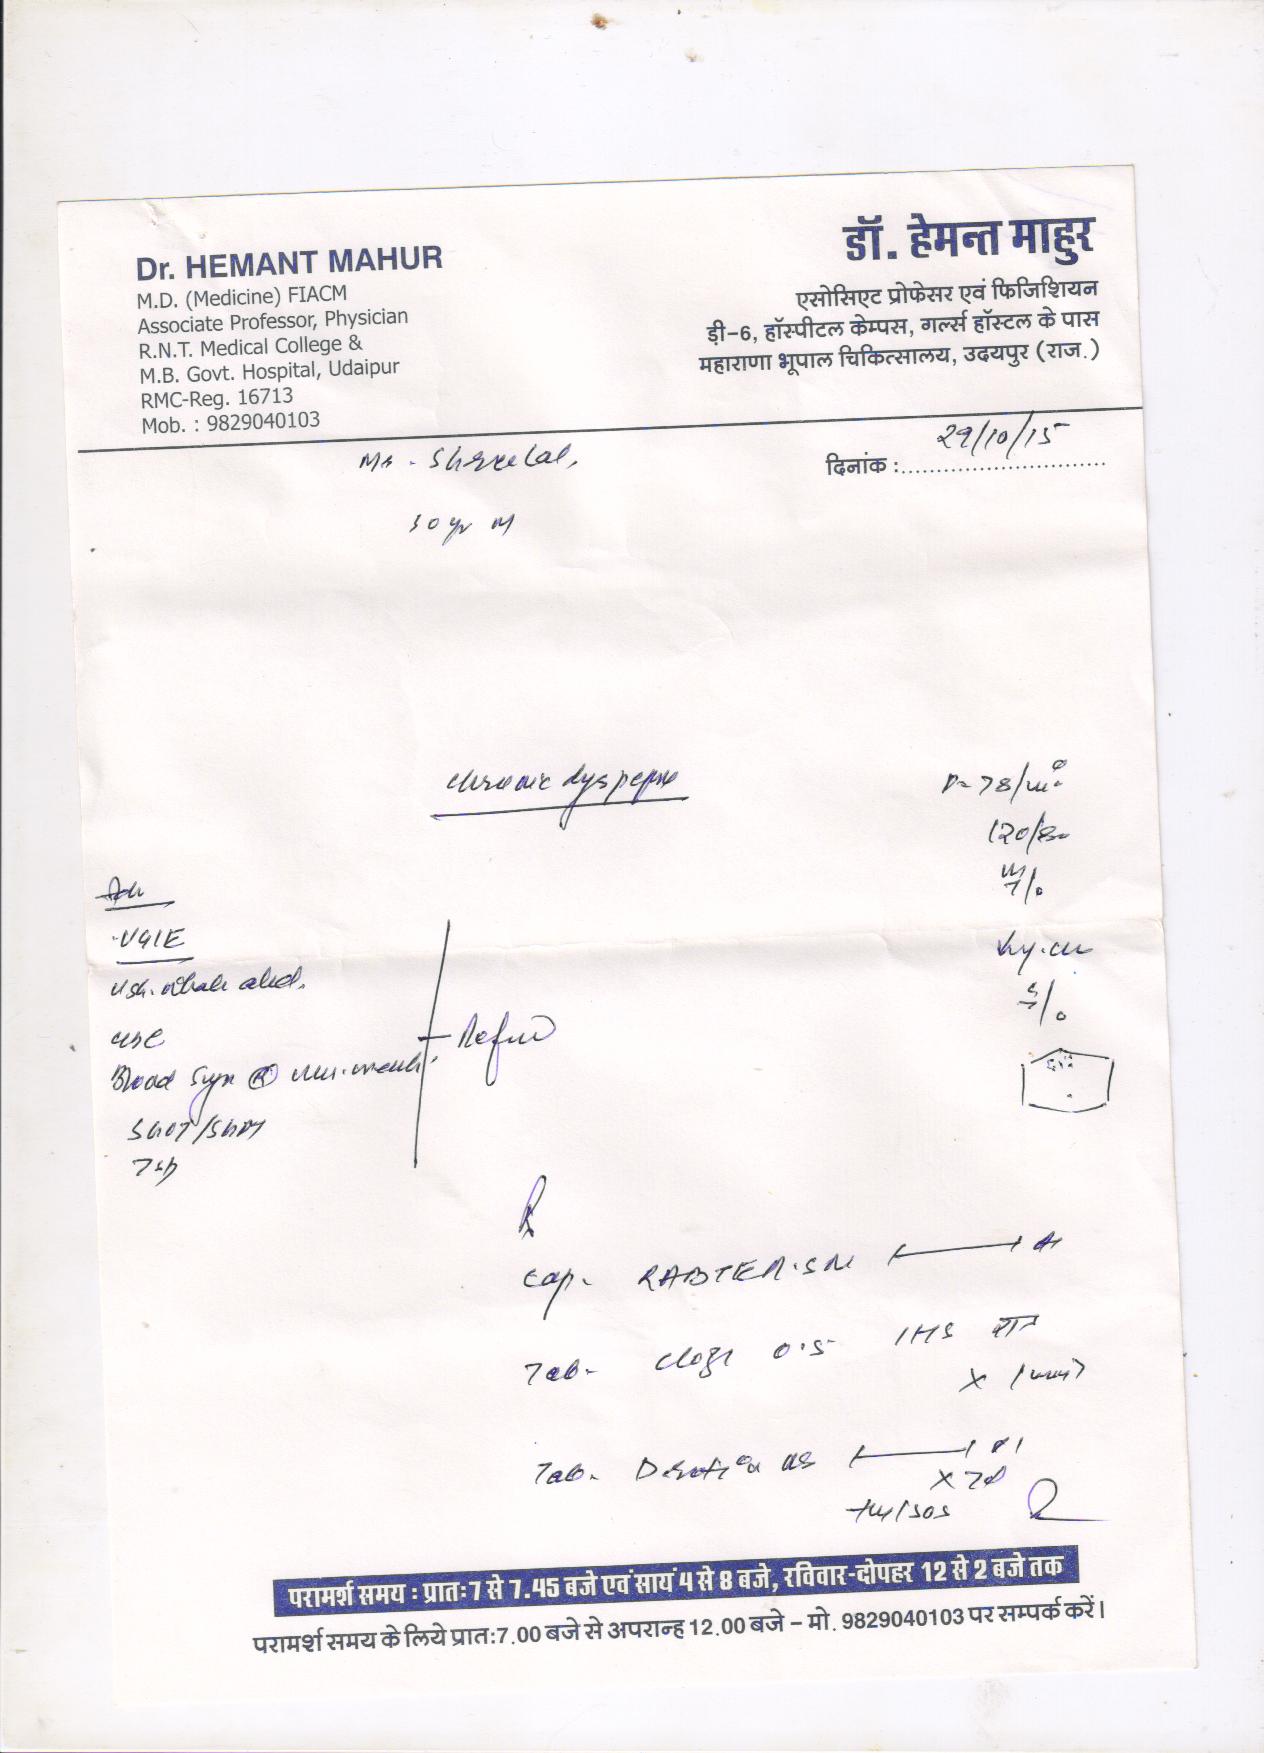 Dr. HEMANT MAHUR
M.D. (Medicine) FIACM
Associate Professor, Physician
R.N.T. Medical College &
M.B. Govt. Hospital, Udaipur
RMC-Reg. 16713
Mob. : 9829040103
डॉ. हेमन्त माहुर
एसोसिएट प्रोफेसर एवं फिजिशियन
ड़ी-6, हॉस्पीटल केम्पस, गर्ल्स हॉस्टल के पास
महाराणा भूपाल चिकित्सालय, उदयपुर (राज.)
दिनांक : 29/10/15
Mr. Shreelal,
30 yr M
chronic dyspepsia
P- 78/m
120/80
Adv
UGIE
USG. whole abd.
CBC
Blood Sugar
SGOT/SGPT
TSH
Rx
Cap. RABTER.SR
Tab. 0.5 1HS रात
Tab.
x 7d
/SOS
परामर्श समय : प्रातः 7 से 7.45 बजे एवं सायं 4 से 8 बजे, रविवार-दोपहर 12 से 2 बजे तक
परामर्श समय के लिये प्रात:7.00 बजे से अपरान्ह 12.00 बजे - मो. 9829040103 पर सम्पर्क करें।